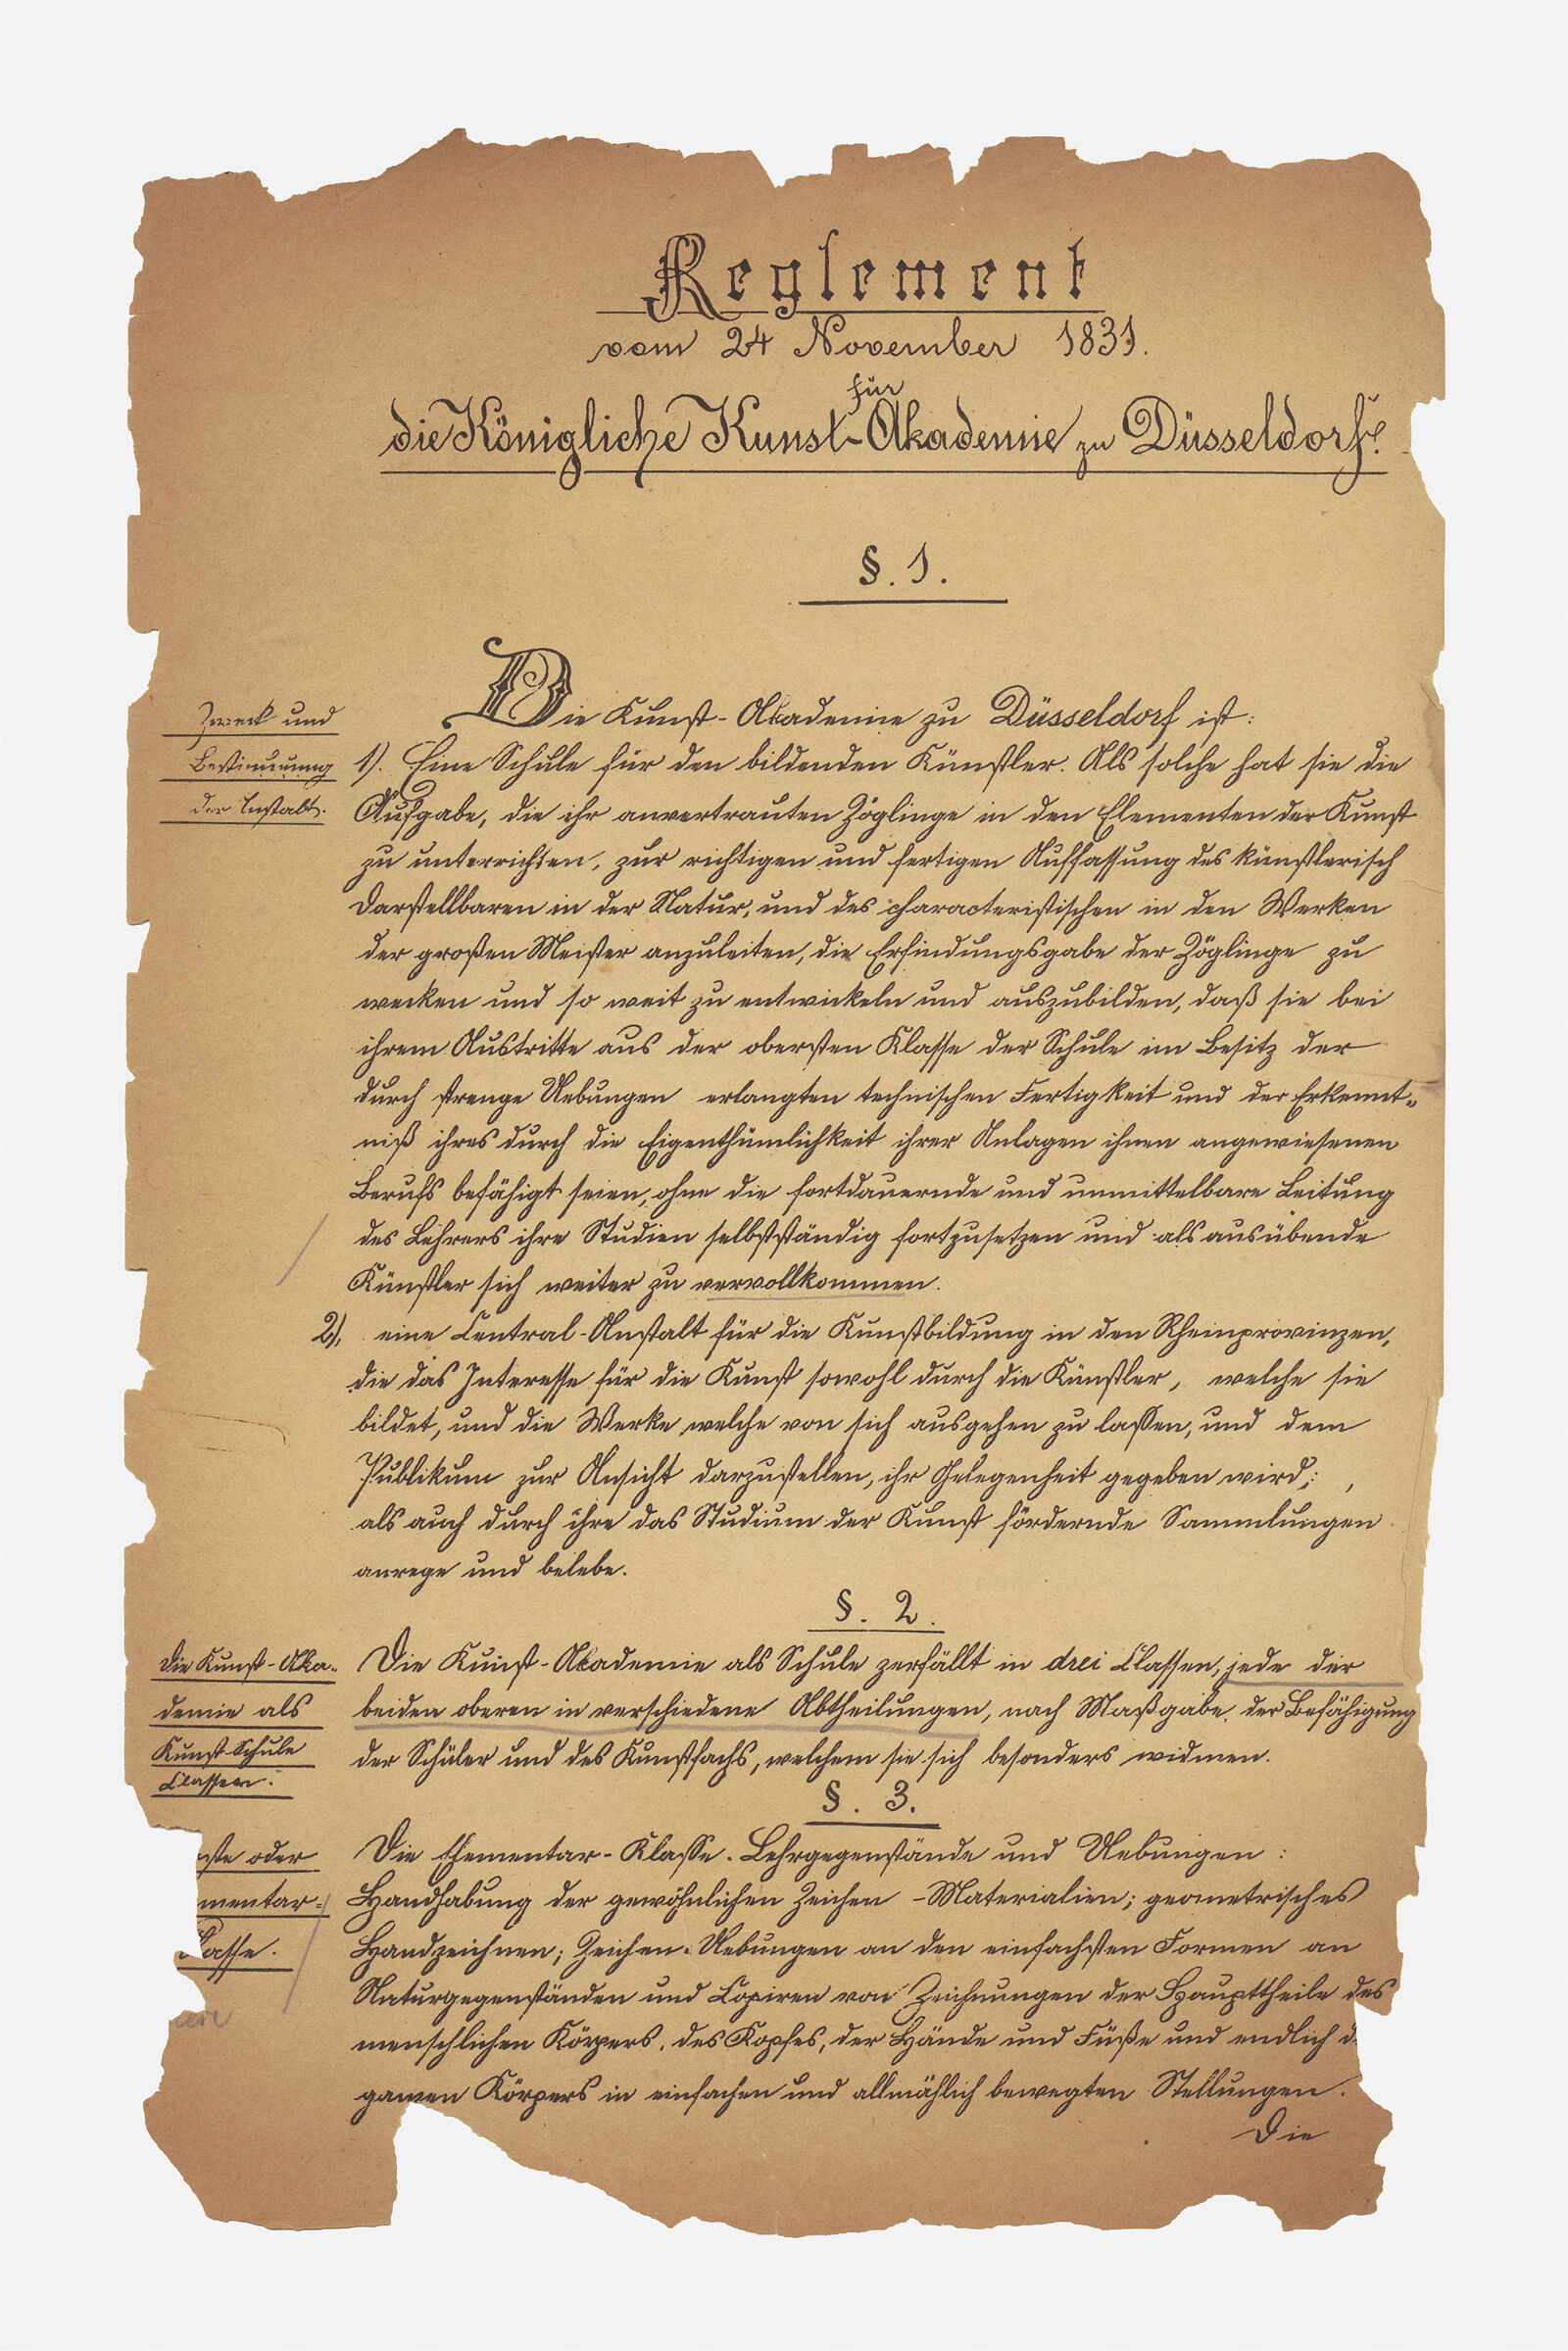 Reglement
vom 24 November 1831.
für
die Königliche Kunst-Akademie zu Düsseldorf.
§. 1.
Zweck und
Bestimmung
der Anstalt.
Die Kunst-Akademie zu Düsseldorf ist:
1). Eine Schule für den bildenden Künstler. Als solche hat sie die
Aufgabe, die ihr anvertrauten Zöglinge in den Elementen der Kunst
zu unterrichten, zur richtigen und fertigen Auffassung des künstlerisch
Darstellbaren in der Natur, und des characteristischen in den Werken
der großen Meister anzuleiten, die Erfindungsgabe der Zöglinge zu
wecken und so weit zu entwickeln und auszubilden, daß sie bei
ihrem Austritte aus der obersten Klasse der Schule im Besitz der
durch strenge Uebungen erlangten technischen Fertigkeit und der Erkennt-
niß ihres durch die Eigenthümlichkeit ihrer Anlagen ihnen angewiesenen
Berufs befähigt seien, ohne die fortdauernde und unmittelbare Leitung
des Lehrers ihre Studien selbstständig fortzusetzen und als ausübende
Künstler sich weiter zu vervollkommen.
2). eine Central-Anstalt für die Kunstbildung in den Rheinprovinzen,
die das Interesse für die Kunst sowohl durch die Künstler, welche sie
bildet, und die Werke welche von sich ausgehen zu lassen, und dem
Publikum zur Ansicht darzustellen, ihr Gelegenheit gegeben wird;
als auch durch ihre das Studium der Kunst fördernde Sammlungen
anrege und belebe.
§. 2.
Die Kunst-Aka-
demie als
Kunst-Schule
Classen.
Die Kunst-Akademie als Schule zerfällt in drei Classen, jede der
beiden oberen in verschiedene Abtheilungen, nach Maßgabe der Befähigung
der Schüler und des Kunstfachs, welchem sie sich besonders widmen.
§. 3.
ste oder
mentar-
Classe.
Die Elementar-Klasse. Lehrgegenstände und Uebungen:
Handhabung der gewöhnlichen Zeichen-Materialien; geometrisches
Handzeichnen; Zeichen-Uebungen an den einfachsten Formen an
Naturgegenständen und Copiren von Zeichnungen der Haupttheile des
menschlichen Körpers, des Kopfes, der Hände und Füße und endlich d
ganzen Körpers in einfachen und allmählich bewegten Stellungen.
Die